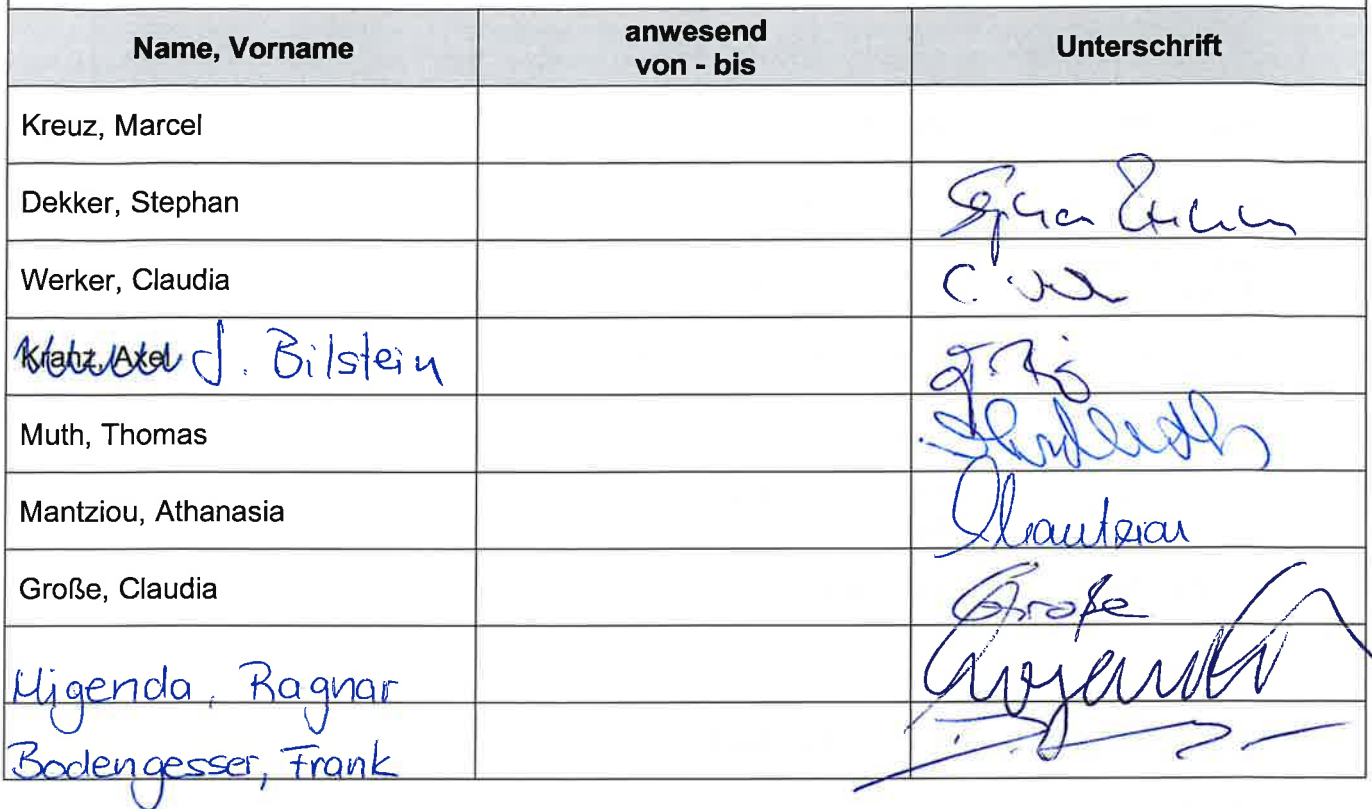 Name, Vorname anwesend von - bis Unterschrift
Kreuz, Marcel
Dekker, Stephan
Werker, Claudia C.
Kranz, Axel J. Bilstein
Muth, Thomas
Mantziou, Athanasia Mantziou
Große, Claudia Große
Migenda, Ragnar
Bodengesser, Frank